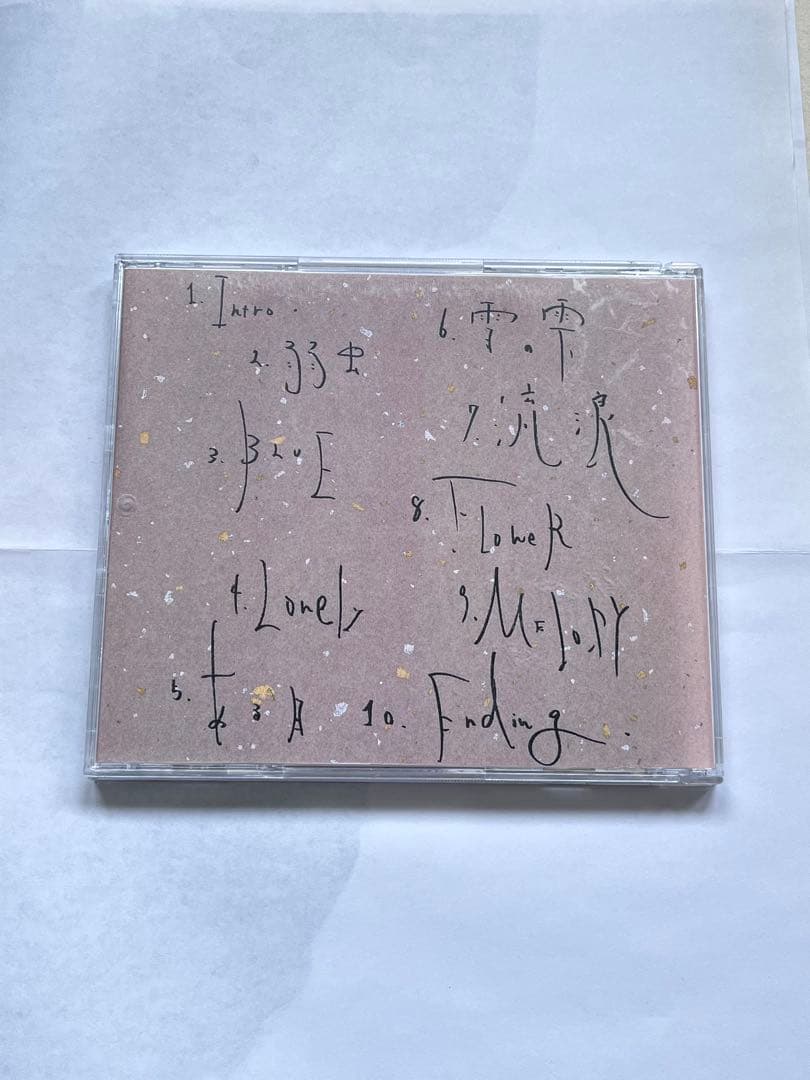 1. Intro.
2. 弱虫
3. BLUE
4. Lonely
5. 月
6. 雪の雫
7. 流浪
8. FloweR
9. MElODY
10. Ending.